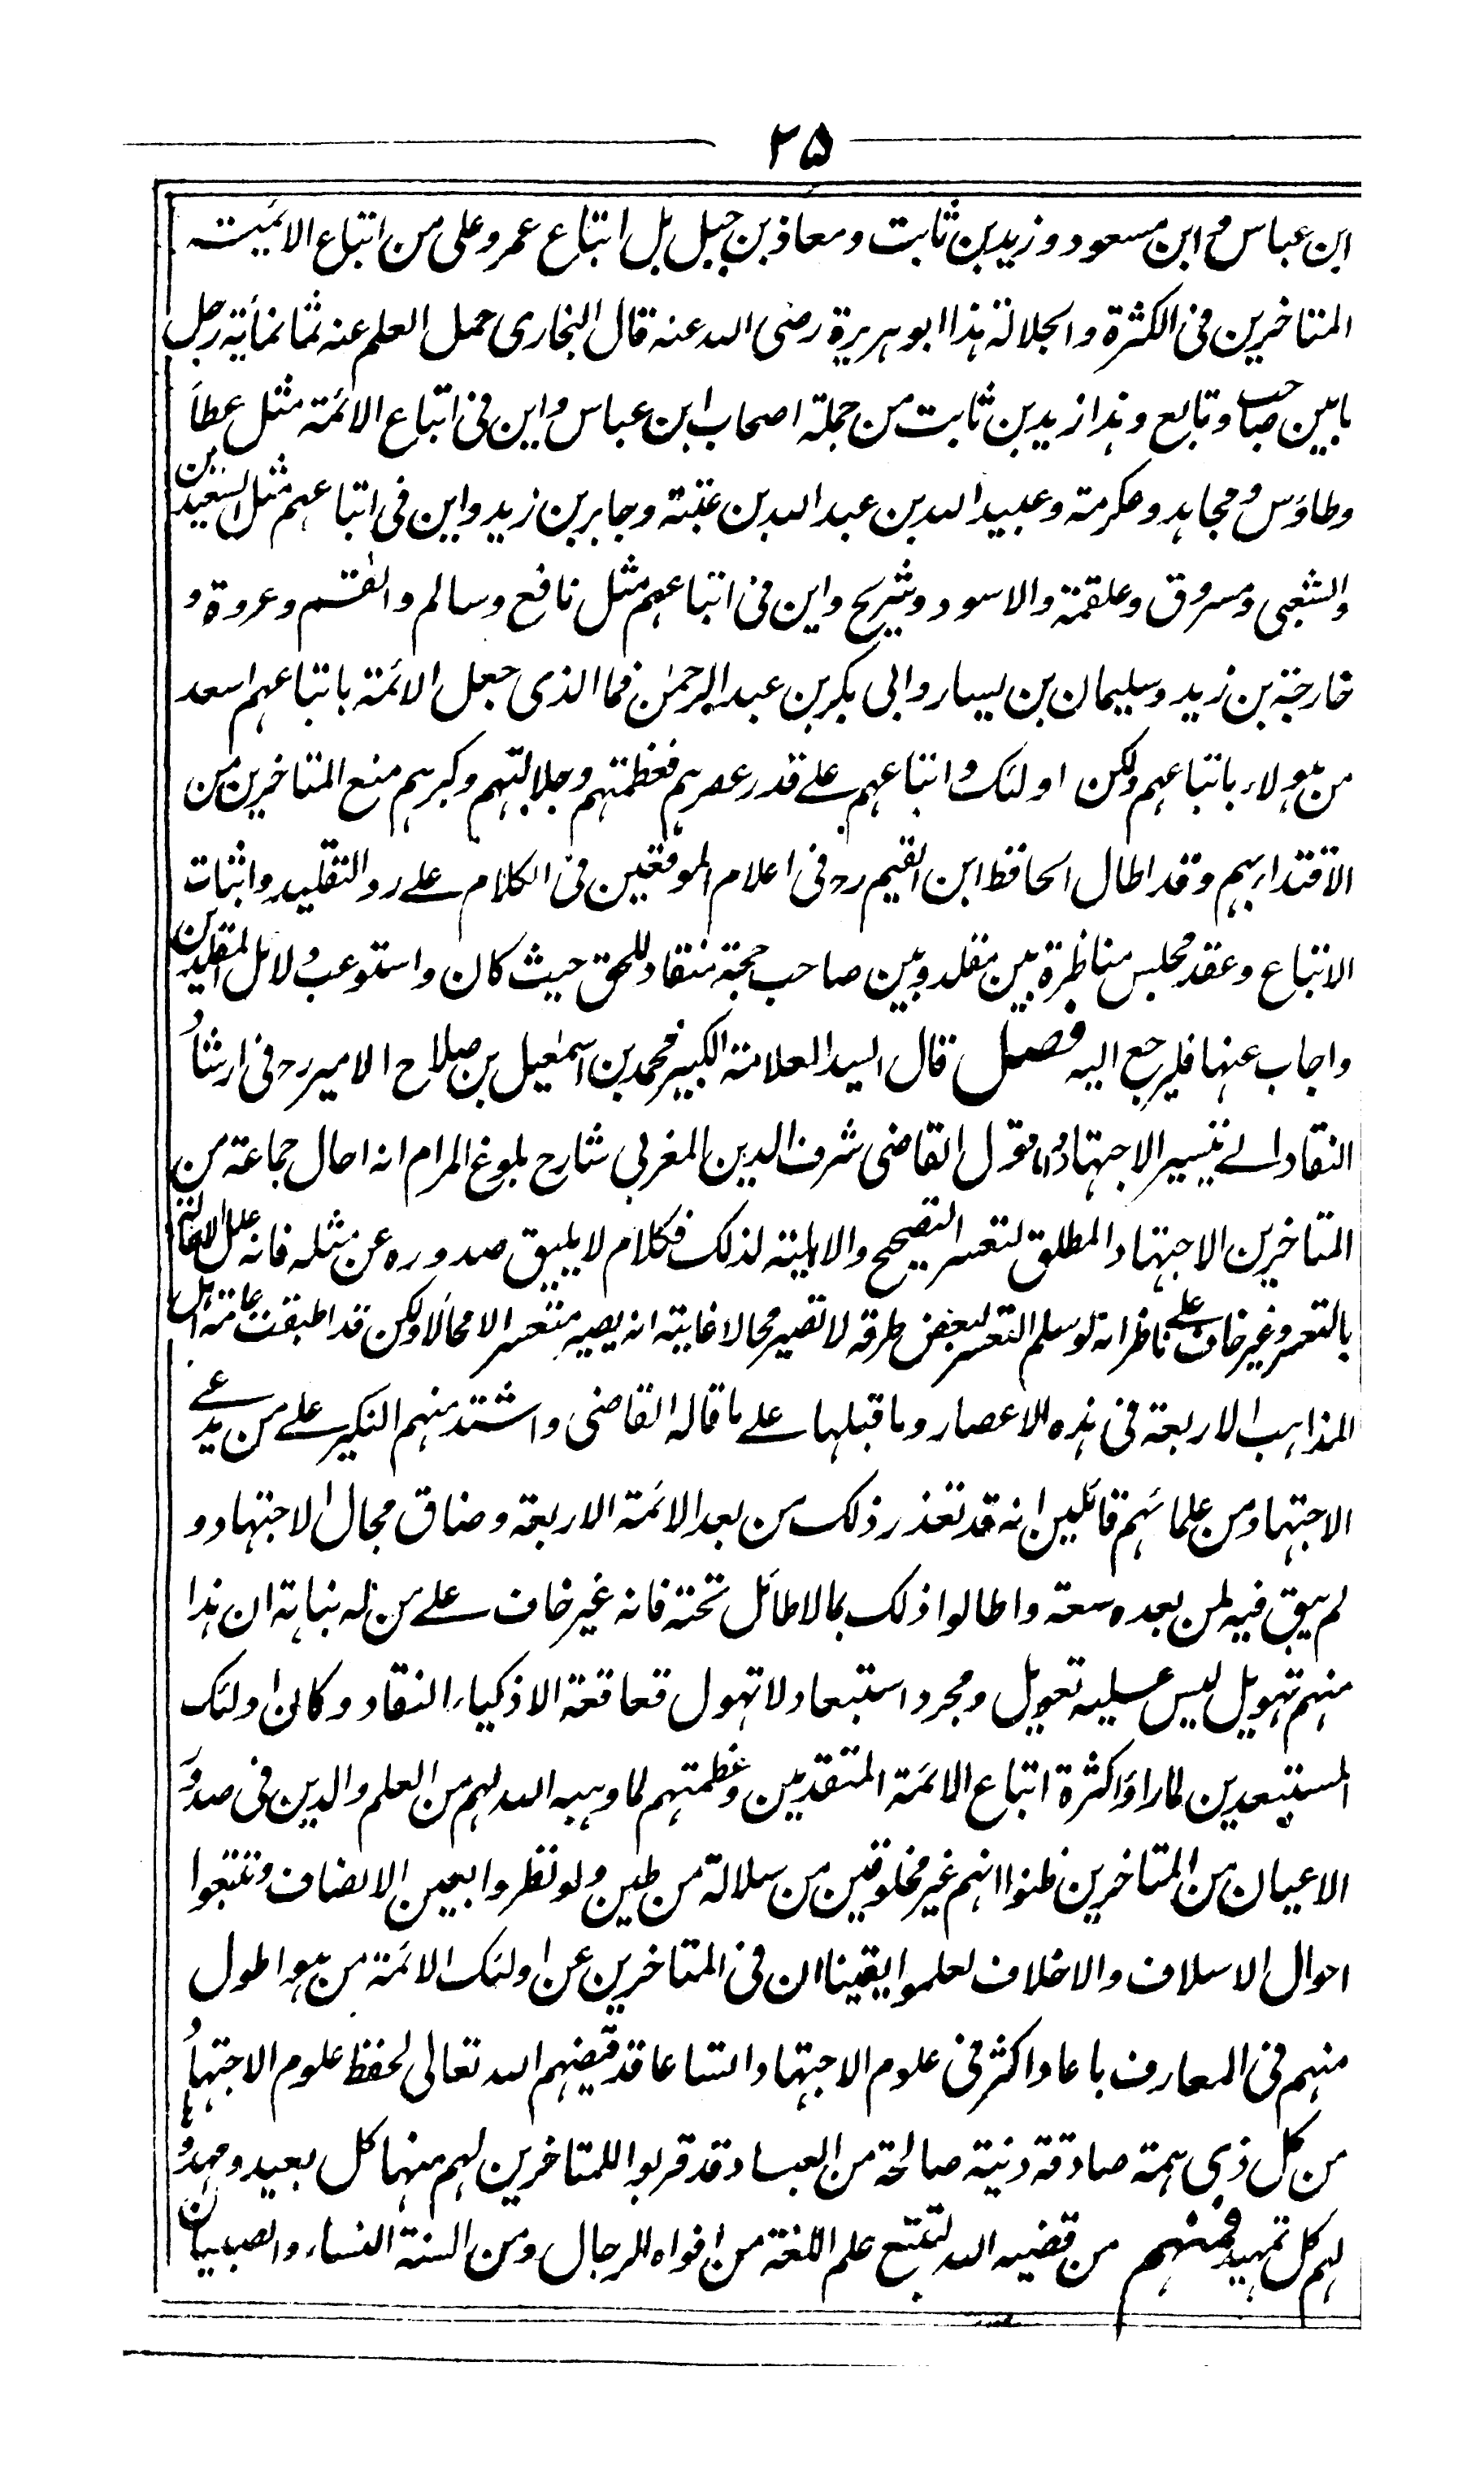 ۲۵
ابن عباس و ابن مسعود وزید بن ثابت ومعاذ بن جبل بل اتباع عمر وعلی من اتباع الائمیة
المتاخرین فی الکثرة والجلالة هذا ابو هریرة رضی الله عنه قال البخاری حمل العلم عنه ثمانمأیة رجل
ما بین صاحب وتابع وهذا زید بن ثابت من جملة اصحاب ابن عباس واین فی اتباع الائمة مثل عطاء
وطاؤس ومجاهد وعکرمة وعبید الله بن عبد الله بن عتبة وجابر بن زید واین فی اتباعهم مثل السعیدین
والشعبی ومسروق وعلقمة والاسود وشریح واین فی اتباعهم مثل نافع وسالم والقسم وعروة و
خارجة بن زید وسلیمان بن یسار وابی بکر بن عبد الرحمٰن فما الذی جعل الائمة باتباعهم اسعد
من هولاء باتباعهم ولکن اولئک واتباعهم علے قدر عصرهم فعظمتهم وجلالتهم وکبرهم منع المتاخرین من
الاقتداء بهم وقد اطال الحافظ ابن القیم رح فی اعلام الموقعین فی الکلام علے رد التقلید واثبات
الاتباع وعقد مجلس مناظرة بین مقلد وبین صاحب حجة منقاد للحق حیث کان واستوعب دلائل المقلدین
واجاب عنها فلیرجع الیه فصل قال السید العلامة الکبیر محمد بن اسمٰعیل بن صلاح الامیر رح فی ارشاد
النقاد الے تیسیر الاجتهاد واما قول القاضی شرف الدین المغربی شارح بلوغ المرام انه احال جماعة من
المتاخرین الاجتهاد المطلق لتعسر التصحیح والاهلیة لذلک فکلام لا یلیق صدوره عن مثله فانه علل الاحالة
بالتعسر وغیر خاف علے ناظر انه لو سلم التعسر لبعض طرقه لا تصیر محالا غایته انه یصیر متعسر الا محالا ولکن قد اطبقت عامة اهل
المذاهب الاربعة فی هذه الاعصار وما قبلها علے ما قاله القاضی واشتد منهم النکیر علے من یدعے
الاجتهاد من علمائهم قائلین انه قد تعذر ذلک من بعد الائمة الاربعة وضاق مجال الاجتهاد و
لم یبق فیه لمن بعده سعة واطالوا ذلک بما لا طائل تحته فانه غیر خاف علے من له نباهة ان هذا
منهم تهویل لیس علیه تعویل ومجرد استبعاد لا تهول قعاقعة الاذکیاء النقاد وکان اولئک
المستبعدین لما راؤا کثرة اتباع الائمة المتقدمین وعظمتهم لما وهبه الله لهم من العلم والدین فی صدور
الاعیان من المتاخرین ظنوا انهم غیر مخلوقین من سلالة من طین ولو نظروا بعین الانصاف وتتبعوا
احوال الاسلاف والاخلاف لعلموا یقینا ان فی المتاخرین عن اولئک الائمة من هو اطول
منهم فی المعارف باعا واکثر فی علوم الاجتهاد اتساعا قد قیضهم الله تعالی لحفظ علوم الاجتهاد
من کل ذی همة صادقة ونیة صالحة من العباد قد قربوا للمتاخرین لهم منها کل بعید ومهدوا
لهم کل تمهید فمنهم من قضیه الله لتتبع علم اللغة من افواه الرجال ومن السنة النساء والصبیان